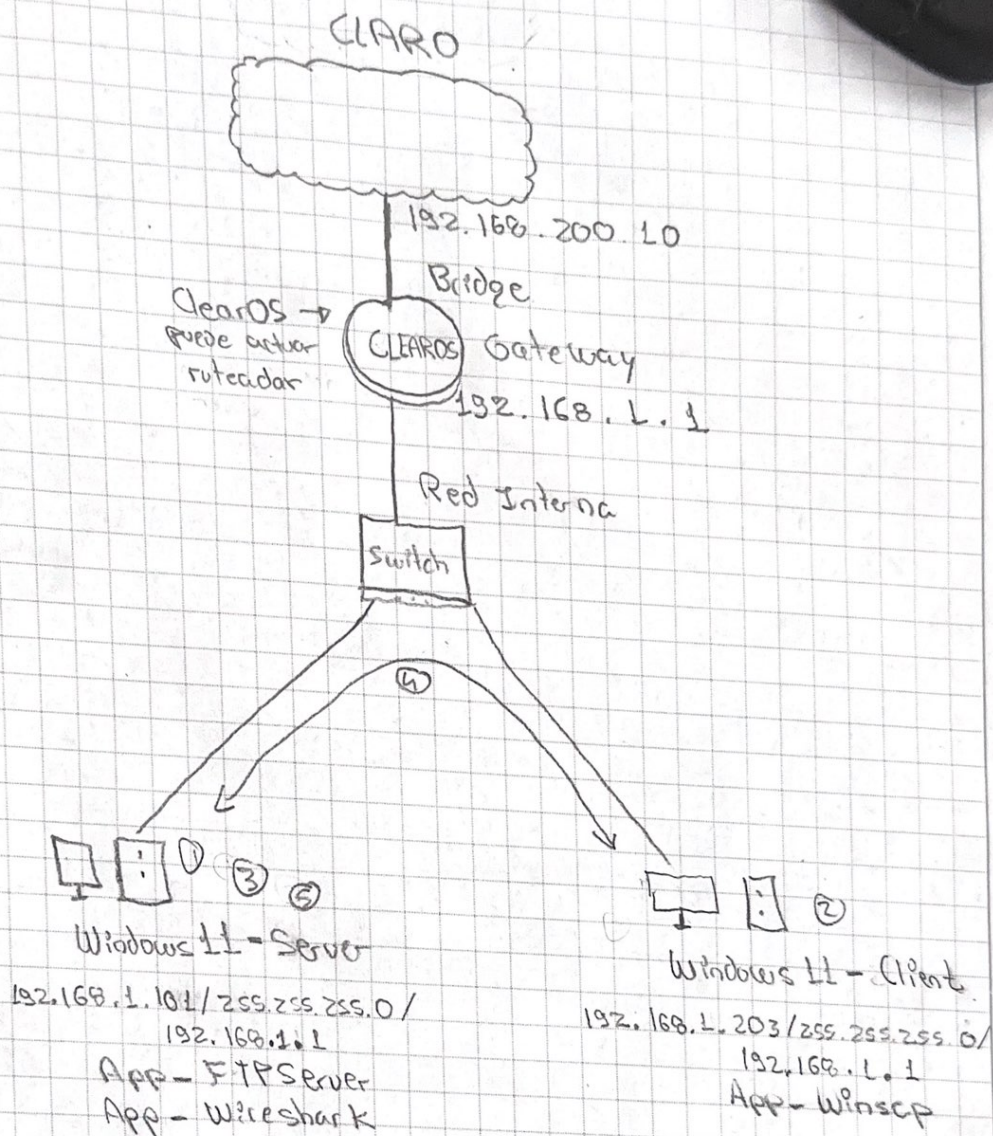 CLARO
192.168.200.10
Bridge
ClearOS →
puede actuar
ruteadar
CLEAROS
Gateway
192.168.1.1
Red Interna
Switch
4
1
3
5
2
Windows 11 - Server
192.168.1.101/255.255.255.0/
192.168.1.1
App - FTPServer
App - Wireshark
Windows 11 - Client
192.168.1.203/255.255.255.0/
192.168.1.1
App - Winscp